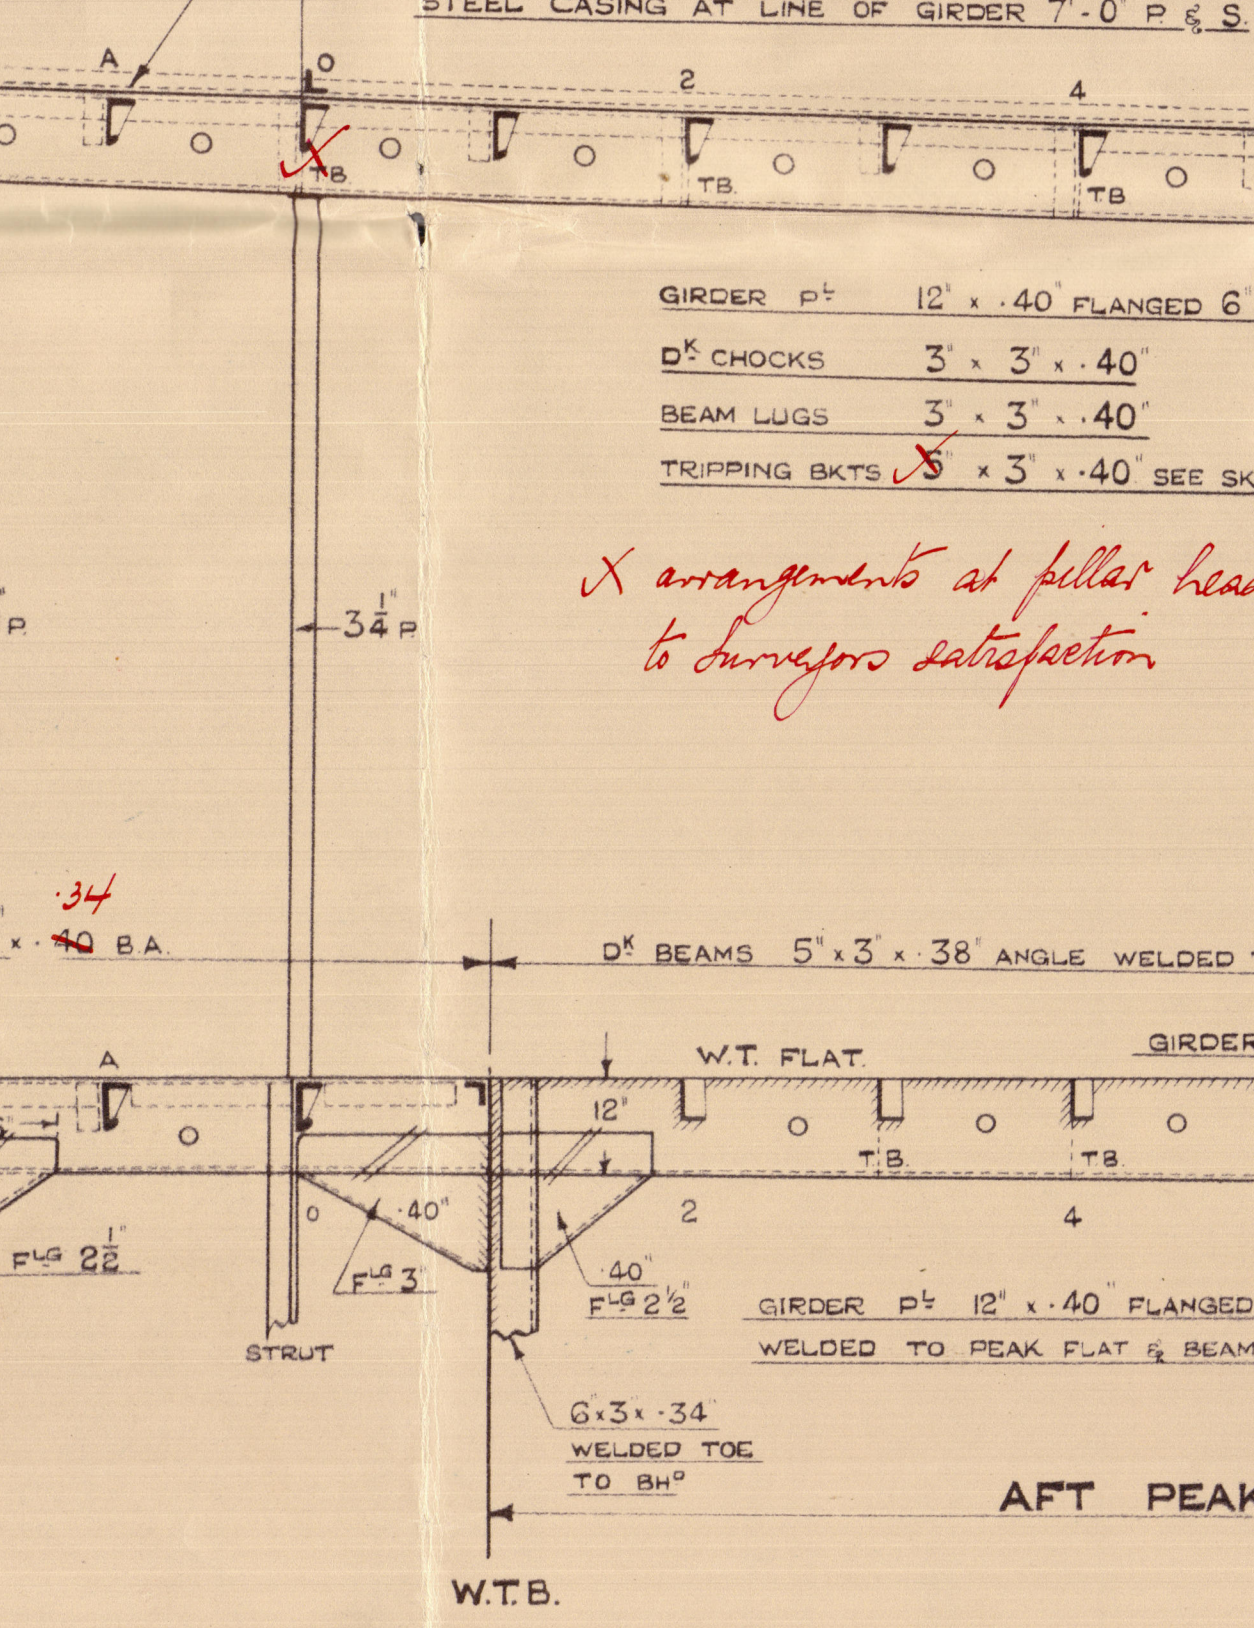 STEEL CASING AT LINE OF GIRDER 7'-0" P. & S.
A
O
2
4
TB
TB.
TB
GIRDER PL 12" x .40" FLANGED 6"
DK CHOCKS 3" x 3" x .40"
BEAM LUGS 3" x 3" x .40"
TRIPPING BKTS X 6" x 3" x .40" SEE SK
X arrangements at pillar head
to Surveyors satisfaction
P.
3 1/4" P
.34
x .40 B.A.
DK BEAMS 5" x 3" x .38" ANGLE WELDED
A
W.T. FLAT.
GIRDER
12"
T.B.
T.B.
O
.40"
2
4
FLG 2 1/2"
FLG 3"
.40"
FLG 2 1/2"
GIRDER PL 12" x .40" FLANGED
WELDED TO PEAK FLAT & BEAM
STRUT
6" x 3" x .34"
WELDED TOE
TO BHD
AFT PEAK
W.T.B.